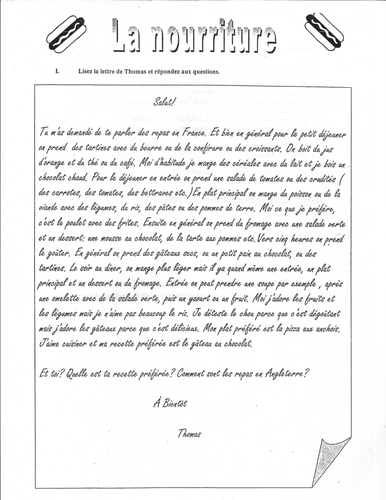 La nourriture
I. Lisez la lettre de Thomas et répondez aux questions.
Salut!
Tu m'as demandé de te parler des repas en France. Et bien en général pour le petit déjeuner
on prend des tartines avec du beurre ou de la confiture ou des croissants. On boit du jus
d'orange et du thé ou du café. Moi d'habitude je mange des céréales avec du lait et je bois un
chocolat chaud. Pour le déjeuner en entrée on prend une salade de tomates ou des crudités (
des carottes, des tomates, des bettraves etc.) En plat principal on mange du poisson ou de la
viande avec des légumes, du riz, des pâtes ou des pommes de terre. Moi ce que je préfère,
c'est le poulet avec des frites. Ensuite en général on prend du fromage avec une salade verte
et un dessert: une mousse au chocolat, de la tarte aux pommes etc. Vers cinq heures on prend
le goûter. En général on prend des gâteaux secs, ou un petit pain au chocolat, ou des
tartines. Le soir au dîner, on mange plus léger mais il ya quand même une entrée, un plat
principal et un dessert ou du fromage. Entrée on peut prendre une soupe par exemple , après
une omelette avec de la salade verte, puis un yaourt ou un fruit. Moi j'adore les fruits et
les légumes mais je n'aime pas beaucoup le riz. Je déteste le chou parce que c'est dégoûtant
mais j'adore les gâteaux parce que c'est délicieux. Mon plat préféré est la pizza aux anchois.
J'aime cuisiner et ma recette préférée est le gâteau au chocolat.
Et toi? Quelle est ta recette préférée? Comment sont les repas en Angleterre?
À Bientôt
Thomas